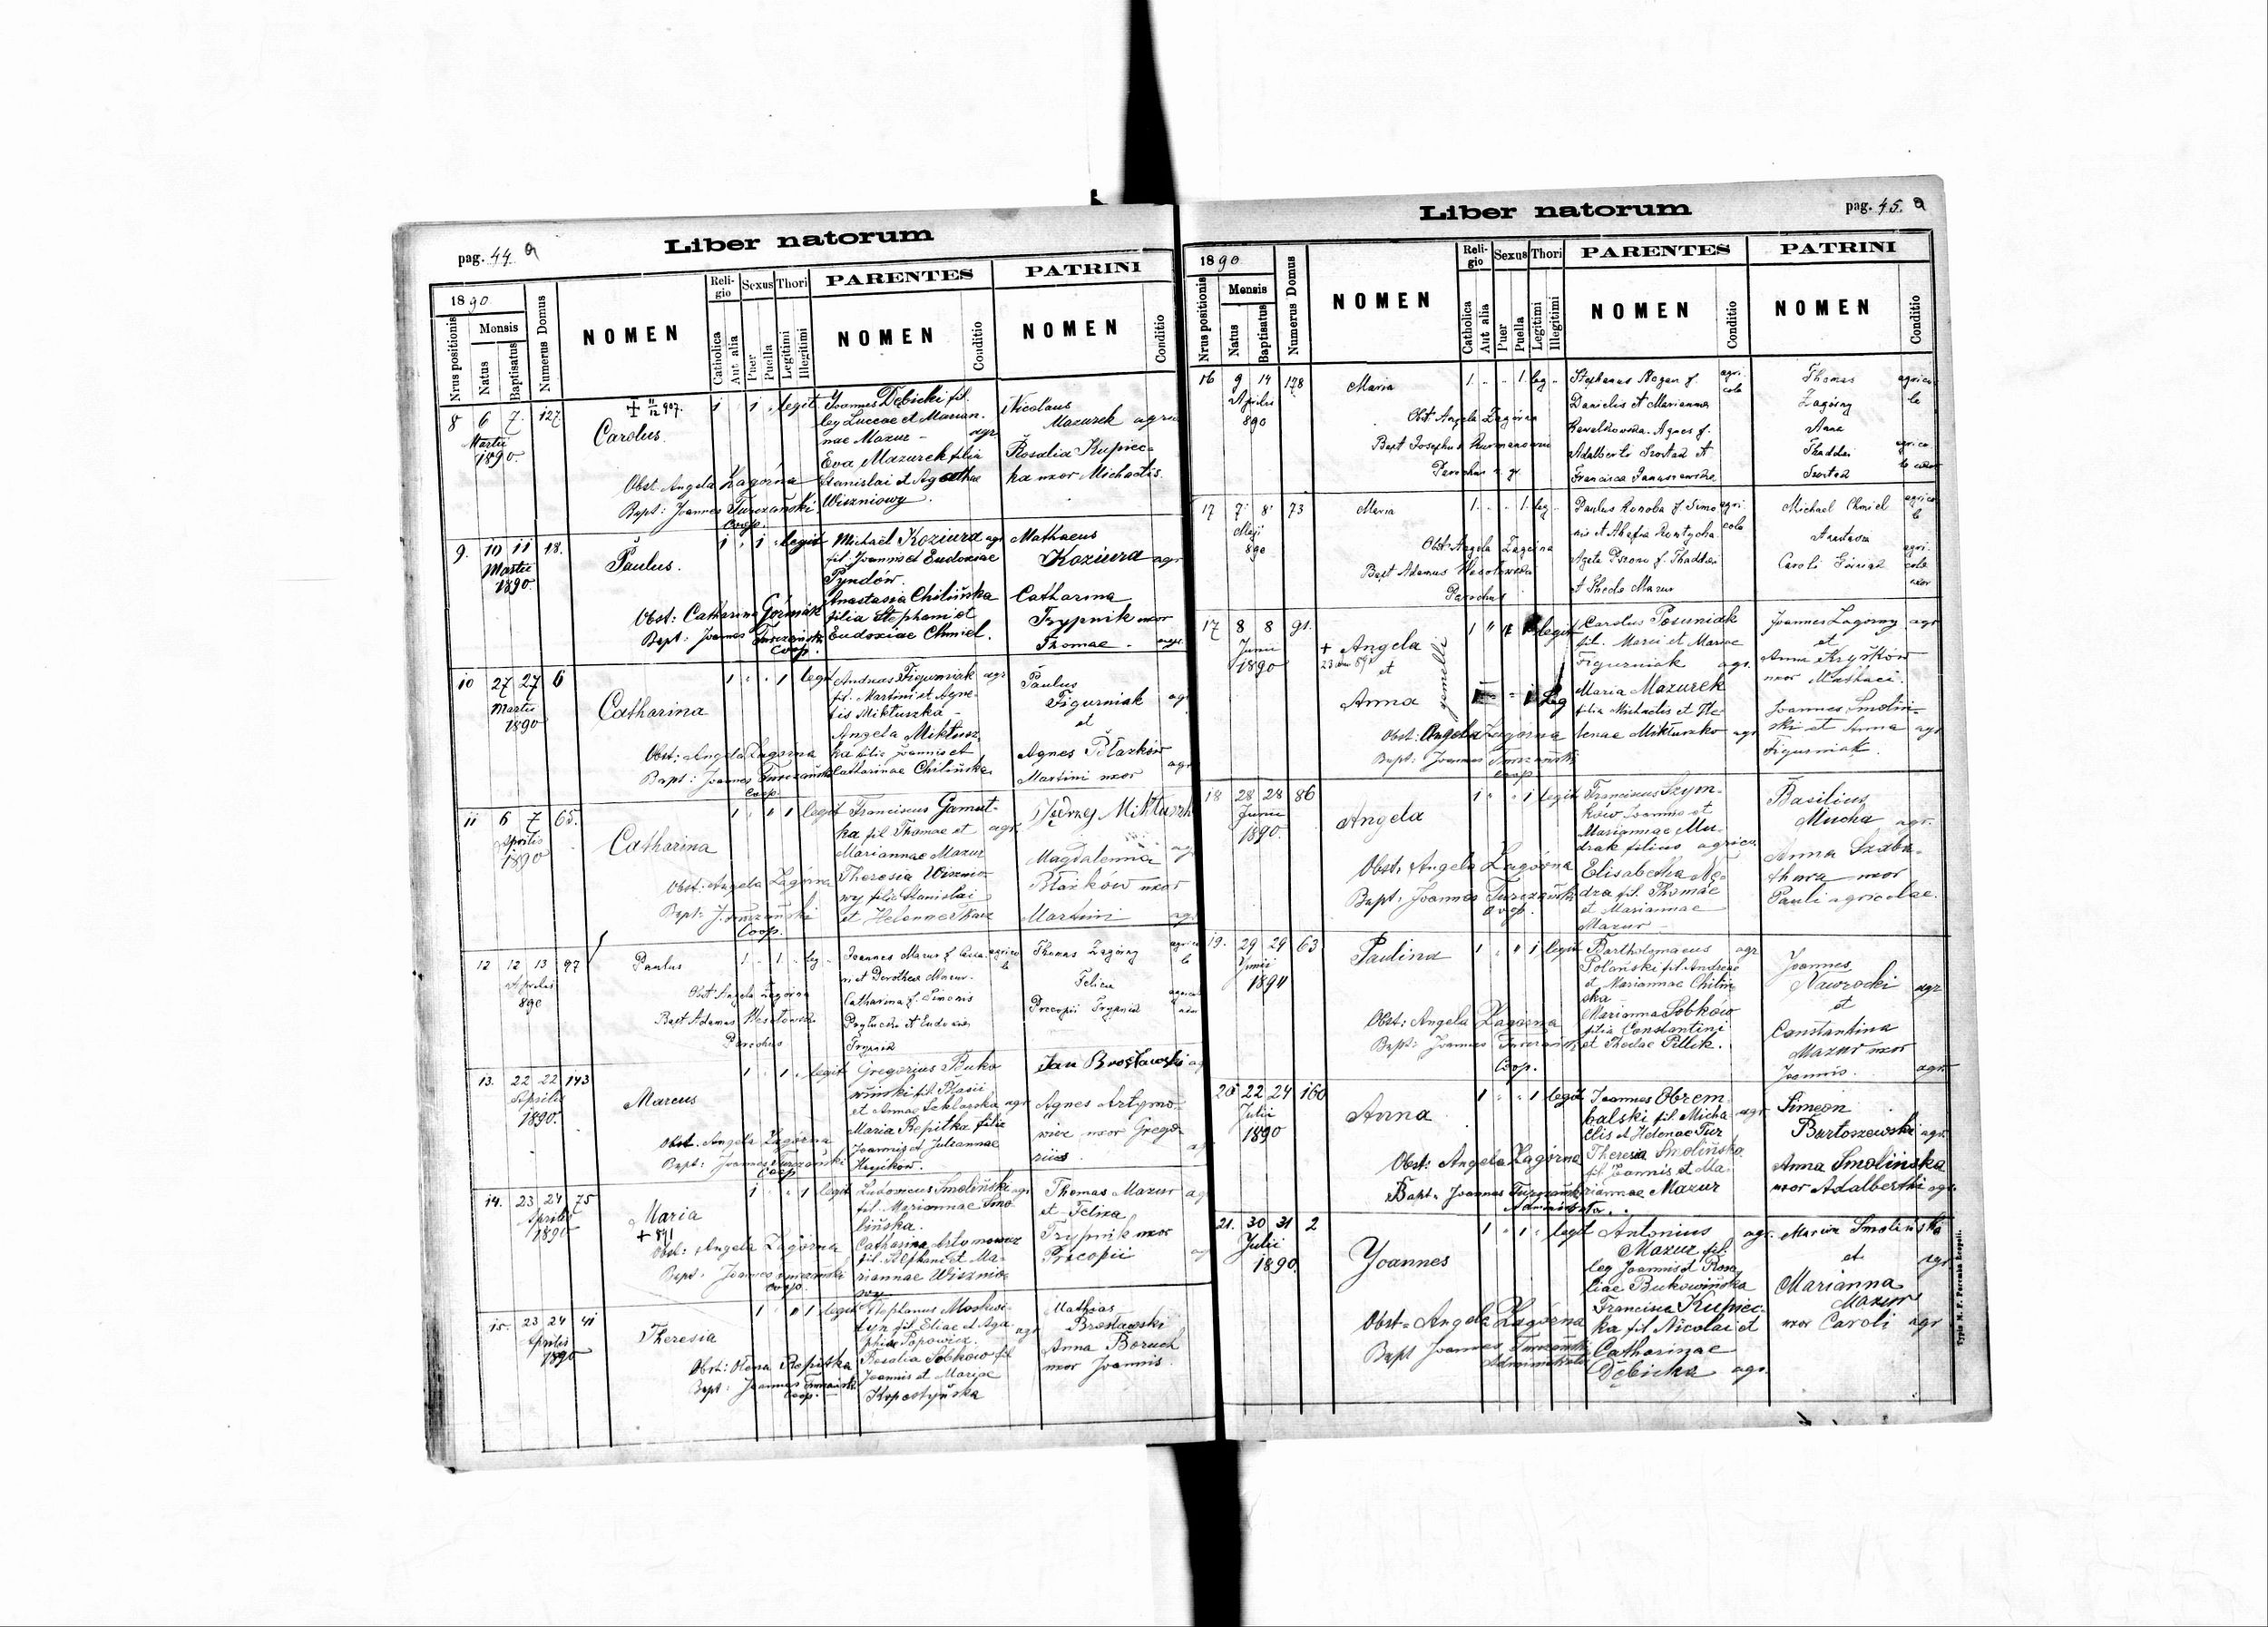 Liber natorum
pag. 44. a
1890.
Nrus positionis
Mensis
Natus
Baptisatus
Numerus Domus
NOMEN
Religio
Catholica
Aut alia
Sexus
Puer
Puella
Thori
Legitimi
Illegitimi
PARENTES
NOMEN
Conditio
PATRINI
NOMEN
Conditio
8 6 7. 127
Martii
1890.
+ 11/12 907.
Carolus.
1 1 legit
Obst. Angela Zagórna
Bapt: Joannes Turczański
Coop.
Joannes Dębicki fil.
leg Luccae et Marian.
nae Mazur – agr.
Eva Mazurek filia
Stanislai et Agathae
Wiszniowy.
Nicolaus
Mazurek
Rosalia Kupiec-
ka uxor Michaelis.
9. 10 11 18.
Martii
1890.
Paulus.
1 1 legit
Obst: Catharina Górniak
Bapt: Joannes Turczański
Coop.
Michaël Koziura agr
fil. Joannis et Eudoxiae
Pyndów.
Anastasia Chilińska
filia Stephani et
Eudoxiae Chmiel.
Mathaeus
Koziura agr
Catharina
Trypnik uxor
Thomae.
10 27 27 6
Martii
1890
Catharina
1 1 legit
Obst: Angela Zagórna
Bapt: Joannes Turczański
Coop.
Andreas Figurniak agr
fil. Martini et Agne-
tis Miktuszka –
Angela Miktusz
ka filia Joannis et
Catharinae Chilińska
Paulus
Figurniak
et
Agnes Błazków
Martini uxor
11 6 7 65.
Aprilis
1890
Catharina
1 1 legit
Obst: Angela Zagórna
Bapt: J. Turczański
Coop.
Franciscus Gamut-
ka fil Thomae et agr.
Mariannae Mazur
Theresia Wisznio-
wy filia Stanislai
et Helenae
Magdalenna
Błazków uxor
Martini
12 12 13 97
Aprilis
890
Paulus
1 1 leg
Obst Angela Zagórna
Bapt Adamus
Parochus
Joannes Mazur f.
et Dorothea Mazur
Catharina f. Simonis
et Eudoxia
Trypnik
Thomas Zagórny
Felicia
Procopii Trypnik
13. 22 22 143
Aprilis
1890.
Marcus
1 1 legit
Obst. Angela Zagórna
Bapt: Joannes Turczański
Coop
Gregorius Buko
wiński fil. Blasii
et Annae Szklarska agr
Maria Repitka filia
Joannis et Juliannae
Hryików.
Jan Brosławski
Agnes Artymo-
wicz uxor Grego-
rius
14. 23 24 75
Aprilis
1890
Maria
+ 891
1 1 legit
Obst: Angela Zagórna
Bapt: Joannes Turczański
Coop.
Ludovicus Smoliński agr
fil. Mariannae Smo
lińska.
Catharina Artymowicz
fil. Stephani et Ma-
riannae Wisznio-
wy
Thomas Mazur
et Felixa
Trypnik uxor
Procopii
15. 23 24 41
Aprilis
1890
Theresia
1 1 legit
Obst: Olena Repitka
Bapt: Joannes Turczański
Coop.
Stephanus Moskwi-
tyn fil. Eliae et Aga
phiae Popowicz. agr
Rosalia Sobków fil
Joannis et Mariae
Kopestyńska
Mathias
Brosławski
Anna Boruch
uxor Joannis
Liber natorum
pag. 45. a
1890
Nrus positionis
Mensis
Natus
Baptisatus
Numerus Domus
NOMEN
Religio
Catholica
Aut alia
Sexus
Puer
Puella
Thori
Legitimi
Illegitimi
PARENTES
NOMEN
Conditio
PATRINI
NOMEN
Conditio
16 9 14 178
Aprilis
890
Maria
1. 1. leg
Obst Angela Zagórna
Bapt Josephus
Parochus r. gr.
Stephanus f. agri
Danielis et Marianna cola
Agnes f.
Adalberti et
Francisca
Thomas
Zagórny
Anna
Thaddei
17 7 8 73
Maji
890
Maria
1. 1. leg
Obst Angela Zagórna
Bapt Adamus
Parochus
Paulus f. Simo
nis et
Agata f. Thaddei
et Thecla Mazur
Michael Chmiel
Anastasia
Caroli
17 8 8 91.
Junii
1890
+ Angela
et
Anna
gemelli
1 legit
Obst: Angela Zagórna
Bapt: Joannes Turczański
Coop
Carolus Posuniak
fil. Marci et Mariae
Figurniak agr.
Maria Mazurek
filia Michaelis et He
lenae Miktuszko agr
Joannes Zagórny agr
et
Anna Kryśków
uxor Mathaei.
Joannes Smoliń-
ski et Anna agr
Figurniak.
18 28 28 86
Junii
1890.
Angela
1 1 legit
Obst. Angela Zagórna
Bapt: Joannes Turczański
Coop.
Franciscus Szym-
ków Joannis et
Mariannae Mu-
drak filius agrico.
Elisabetha Nę-
dza fil. Thomae
et Mariannae
Mazur
Basilius
Mucha agr.
Anna Szabu-
uxor
Pauli agricolae.
19. 29 29 63
Junii
1890
Paulina
1 1 legit
Obst: Angela Zagórna
Bapt: Joannes Turczański
Coop.
Bartholomaeus agr
Polański fil. Andreae
et Mariannae Chiliń
ska
Marianna Sobków
filia Constantini
et Theclae Pillik.
Joannes
Nawrocki agr
et
Constantina
Mazur uxor
Joannis. agr.
20 22 24 160
Julii
1890
Anna
1 1 legit
Obst: Angela Zagórna
Bapt: Joannes Turczański
Administrator.
Joannes Obrem-
balski fil Micha agr
elis et Helenae Tur
Theresia Smolińska
fil. Joannis et Ma-
riannae Mazur
Simeon
Bartoszewski agr.
Anna Smolińska
uxor Adalberthi agr.
21. 30 31 2
Julii
1890.
Joannes
1 1 legit
Obst. Angela Zagórna
Bapt Joannes Turczański
Administrator
Antonius agr.
Mazur fil.
leg Joannis et Rosa
liae Bukowińska
Francisca Kupiec-
ka fil Nicolai et
Catharinae
Dębicka agr.
Marcin Smolińska
et agr.
Marianna
Mazur
uxor Caroli agr
Typis M. F. Poremba Leopoli.